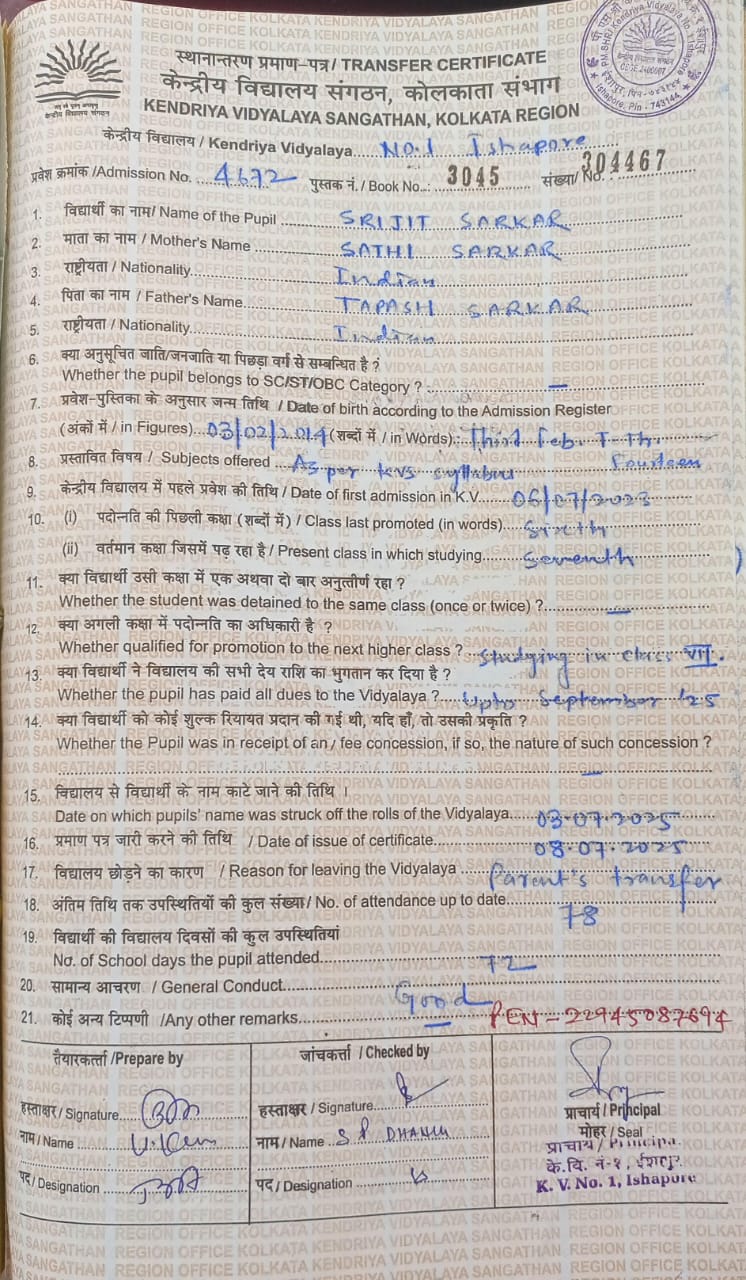 स्थानान्तरण प्रमाण-पत्र / TRANSFER CERTIFICATE
केन्द्रीय विद्यालय संगठन, कोलकाता संभाग
KENDRIYA VIDYALAYA SANGATHAN, KOLKATA REGION
केन्द्रीय विद्यालय / Kendriya Vidyalaya No.1 Ishapore
प्रवेश क्रमांक /Admission No. 4672 पुस्तक नं. / Book No.: 3045 संख्या/ No 304467
1. विद्यार्थी का नाम/ Name of the Pupil SRIJIT SARKAR
2. माता का नाम / Mother's Name SATHI SARKAR
3. राष्ट्रीयता / Nationality Indian
4. पिता का नाम / Father's Name TAPASH SARKAR
5. राष्ट्रीयता / Nationality Indian
6. क्या अनुसूचित जाति/जनजाति या पिछड़ा वर्ग से सम्बन्धित है ?
Whether the pupil belongs to SC/ST/OBC Category ? —
7. प्रवेश-पुस्तिका के अनुसार जन्म तिथि / Date of birth according to the Admission Register
(अंकों में / in Figures) 03/02/2014 (शब्दों में / in Words).: Third Feb. T. Th.
8. प्रस्तावित विषय / Subjects offered As per kvs syllabus Fourteen
9. केन्द्रीय विद्यालय में पहले प्रवेश की तिथि / Date of first admission in K.V. 06/07/2023
10. (i) पदोन्नति की पिछली कक्षा (शब्दों में) / Class last promoted (in words) Sixth
(ii) वर्तमान कक्षा जिसमें पढ़ रहा है / Present class in which studying Seventh
11. क्या विद्यार्थी उसी कक्षा में एक अथवा दो बार अनुत्तीर्ण रहा ?
Whether the student was detained to the same class (once or twice) ? —
12. क्या अगली कक्षा में पदोन्नति का अधिकारी है ?
Whether qualified for promotion to the next higher class ? Studying in class VII.
13. क्या विद्यार्थी ने विद्यालय की सभी देय राशि का भुगतान कर दिया है ?
Whether the pupil has paid all dues to the Vidyalaya ? Upto September '25
14. क्या विद्यार्थी को कोई शुल्क रियायत प्रदान की गई थी, यदि हाँ, तो उसकी प्रकृति ?
Whether the Pupil was in receipt of an / fee concession, if so, the nature of such concession ?
—
15. विद्यालय से विद्यार्थी के नाम काटे जाने की तिथि ।
Date on which pupils' name was struck off the rolls of the Vidyalaya 03.07.2025
16. प्रमाण पत्र जारी करने की तिथि / Date of issue of certificate 08.07.2025
17. विद्यालय छोड़ने का कारण / Reason for leaving the Vidyalaya Parent's transfer
18. अंतिम तिथि तक उपस्थितियों की कुल संख्या/ No. of attendance up to date 78
19. विद्यार्थी की विद्यालय दिवसों की कुल उपस्थितियां
No. of School days the pupil attended 72
20. सामान्य आचरण / General Conduct Good
21. कोई अन्य टिप्पणी /Any other remarks — PEN - 22945087694
तैयारकर्त्ता /Prepare by
जांचकर्त्ता / Checked by
हस्ताक्षर / Signature
हस्ताक्षर / Signature
प्राचार्य / Principal
मोहर / Seal
नाम / Name
नाम / Name S P DHANUK
प्राचार्य / Principa
के.वि. नं-१, ईशापुर
K. V. No. 1, Ishapore
पद / Designation
पद / Designation